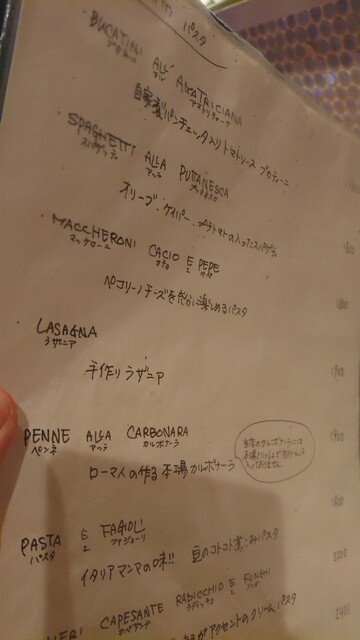 パスタ
BUCATINI ALL' AMATRICIANA
ブカティーニ アル アマトリチャーナ
自家製パンチェッタ入りトマトソース ブカティーニ
SPAGHETTI ALLA PUTTANESCA
スパゲッティ アッラ プッタネスカ
オリーブ・ケイパー・トマトの入ったスパゲティ
MACCHERONI CACIO E PEPE
マッケローニ カチョ エ ペペ
ペコリーノチーズを充分に楽しめるパスタ
LASAGNA
ラザニア
手作りラザニア
PENNE ALLA CARBONARA
ペンネ アッラ カルボナーラ
ローマ人の作る本場カルボナーラ
当店のカルボナーラには
入っておりません
PASTA E FAGIOLI
パスタ エ ファジョーリ
イタリアマンマの味!! 豆のコトコト煮込みパスタ
CAPESANTE RADICCHIO E FUNGHI
カペサンテ ラディッキオ エ フンギ
がアクセントのクリームパスタ